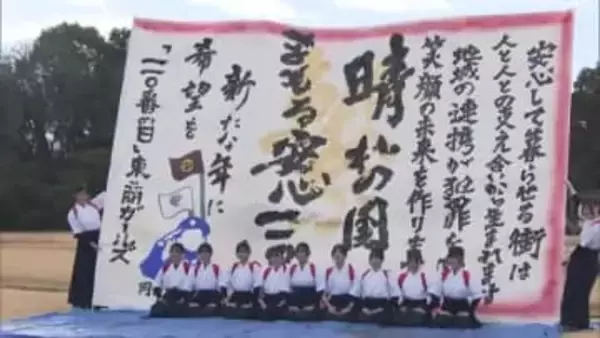 安心して暮らせる街は
人と人との支え合いから生まれます
地域の連携が犯罪を
笑顔の未来を作りま
晴れの国
まもる安心一一
新たな年に
希望を